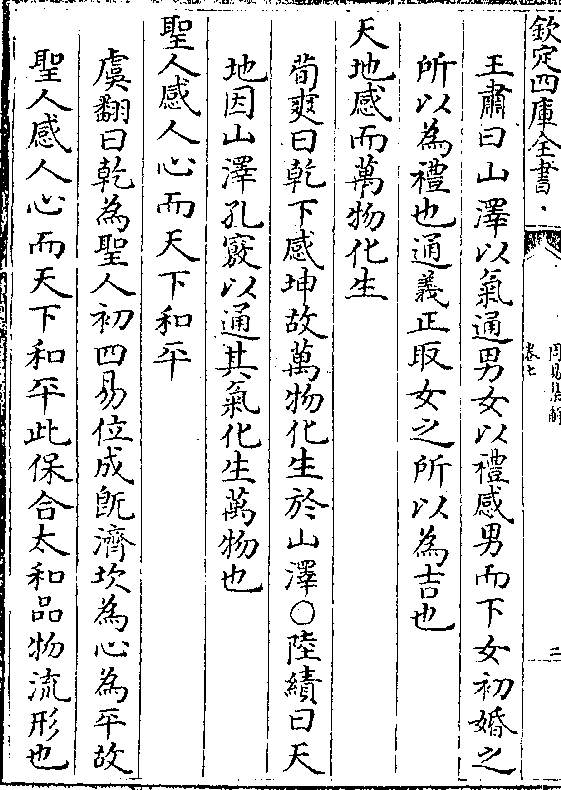 欽定四庫全書
周易集解
卷七
三
王肅曰山澤以氣通男女以禮感男而下女初婚之
所以為禮也通義正取女之所以為吉也
天地感而萬物化生
荀爽曰乾下感坤故萬物化生於山澤○陸績曰天
地因山澤孔竅以通其氣化生萬物也
聖人感人心而天下和平
虞翻曰乾為聖人初四易位成旣濟坎為心為平故
聖人感人心而天下和平此保合太和品物流形也